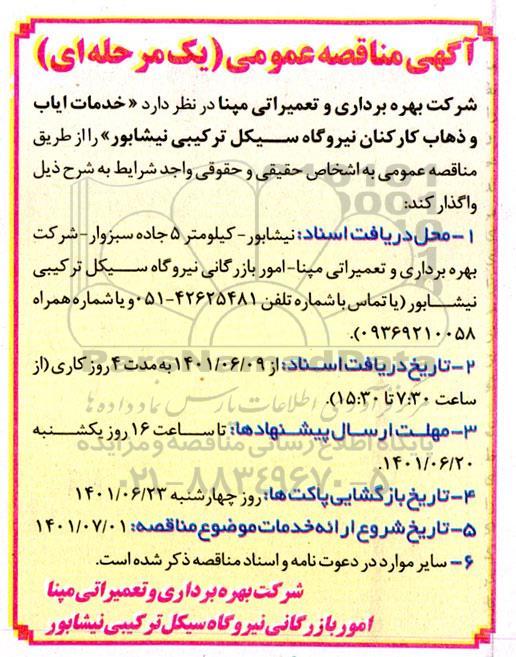 آگهی مناقصه عمومی (یک مرحله‌ای)
شرکت بهره برداری و تعمیراتی مپنا در نظر دارد «خدمات ایاب
و ذهاب کارکنان نیروگاه سیکل ترکیبی نیشابور» را از طریق
مناقصه عمومی به اشخاص حقیقی و حقوقی واجد شرایط به شرح ذیل
واگذار کند:
۱-محل دریافت اسناد: نیشابور-کیلومتر ۵ جاده سبزوار-شرکت
بهره برداری و تعمیراتی مپنا-امور بازرگانی نیروگاه سیکل ترکیبی
نیشابور (یا تماس با شماره تلفن ۴۲۶۲۵۴۸۱-۰۵۱ و یا شماره همراه
۰۹۳۶۹۲۱۰۰۵۸).
۲-تاریخ دریافت اسناد: از ۱۴۰۱/۰۶/۰۹ به مدت ۴ روز کاری (از
ساعت ۷:۳۰ تا ۱۵:۳۰).
۳-مهلت ارسال پیشنهادها: تا ساعت ۱۶ روز یکشنبه
۱۴۰۱/۰۶/۲۰.
۴-تاریخ بازگشایی پاکت‌ها: روز چهارشنبه ۱۴۰۱/۰۶/۲۳
۵-تاریخ شروع ارائه خدمات موضوع مناقصه: ۱۴۰۱/۰۷/۰۱
۶- سایر موارد در دعوت نامه و اسناد مناقصه ذکر شده است.
شرکت بهره برداری و تعمیراتی مپنا
امور بازرگانی نیروگاه سیکل ترکیبی نیشابور
ParsNamadData
مرکز فرآوری اطلاعات پارس نماد داده‌ها
پایگاه اطلاع رسانی مناقصه و مزایده
۰۲۱-۸۸۳۴۹۶۷۰-۵